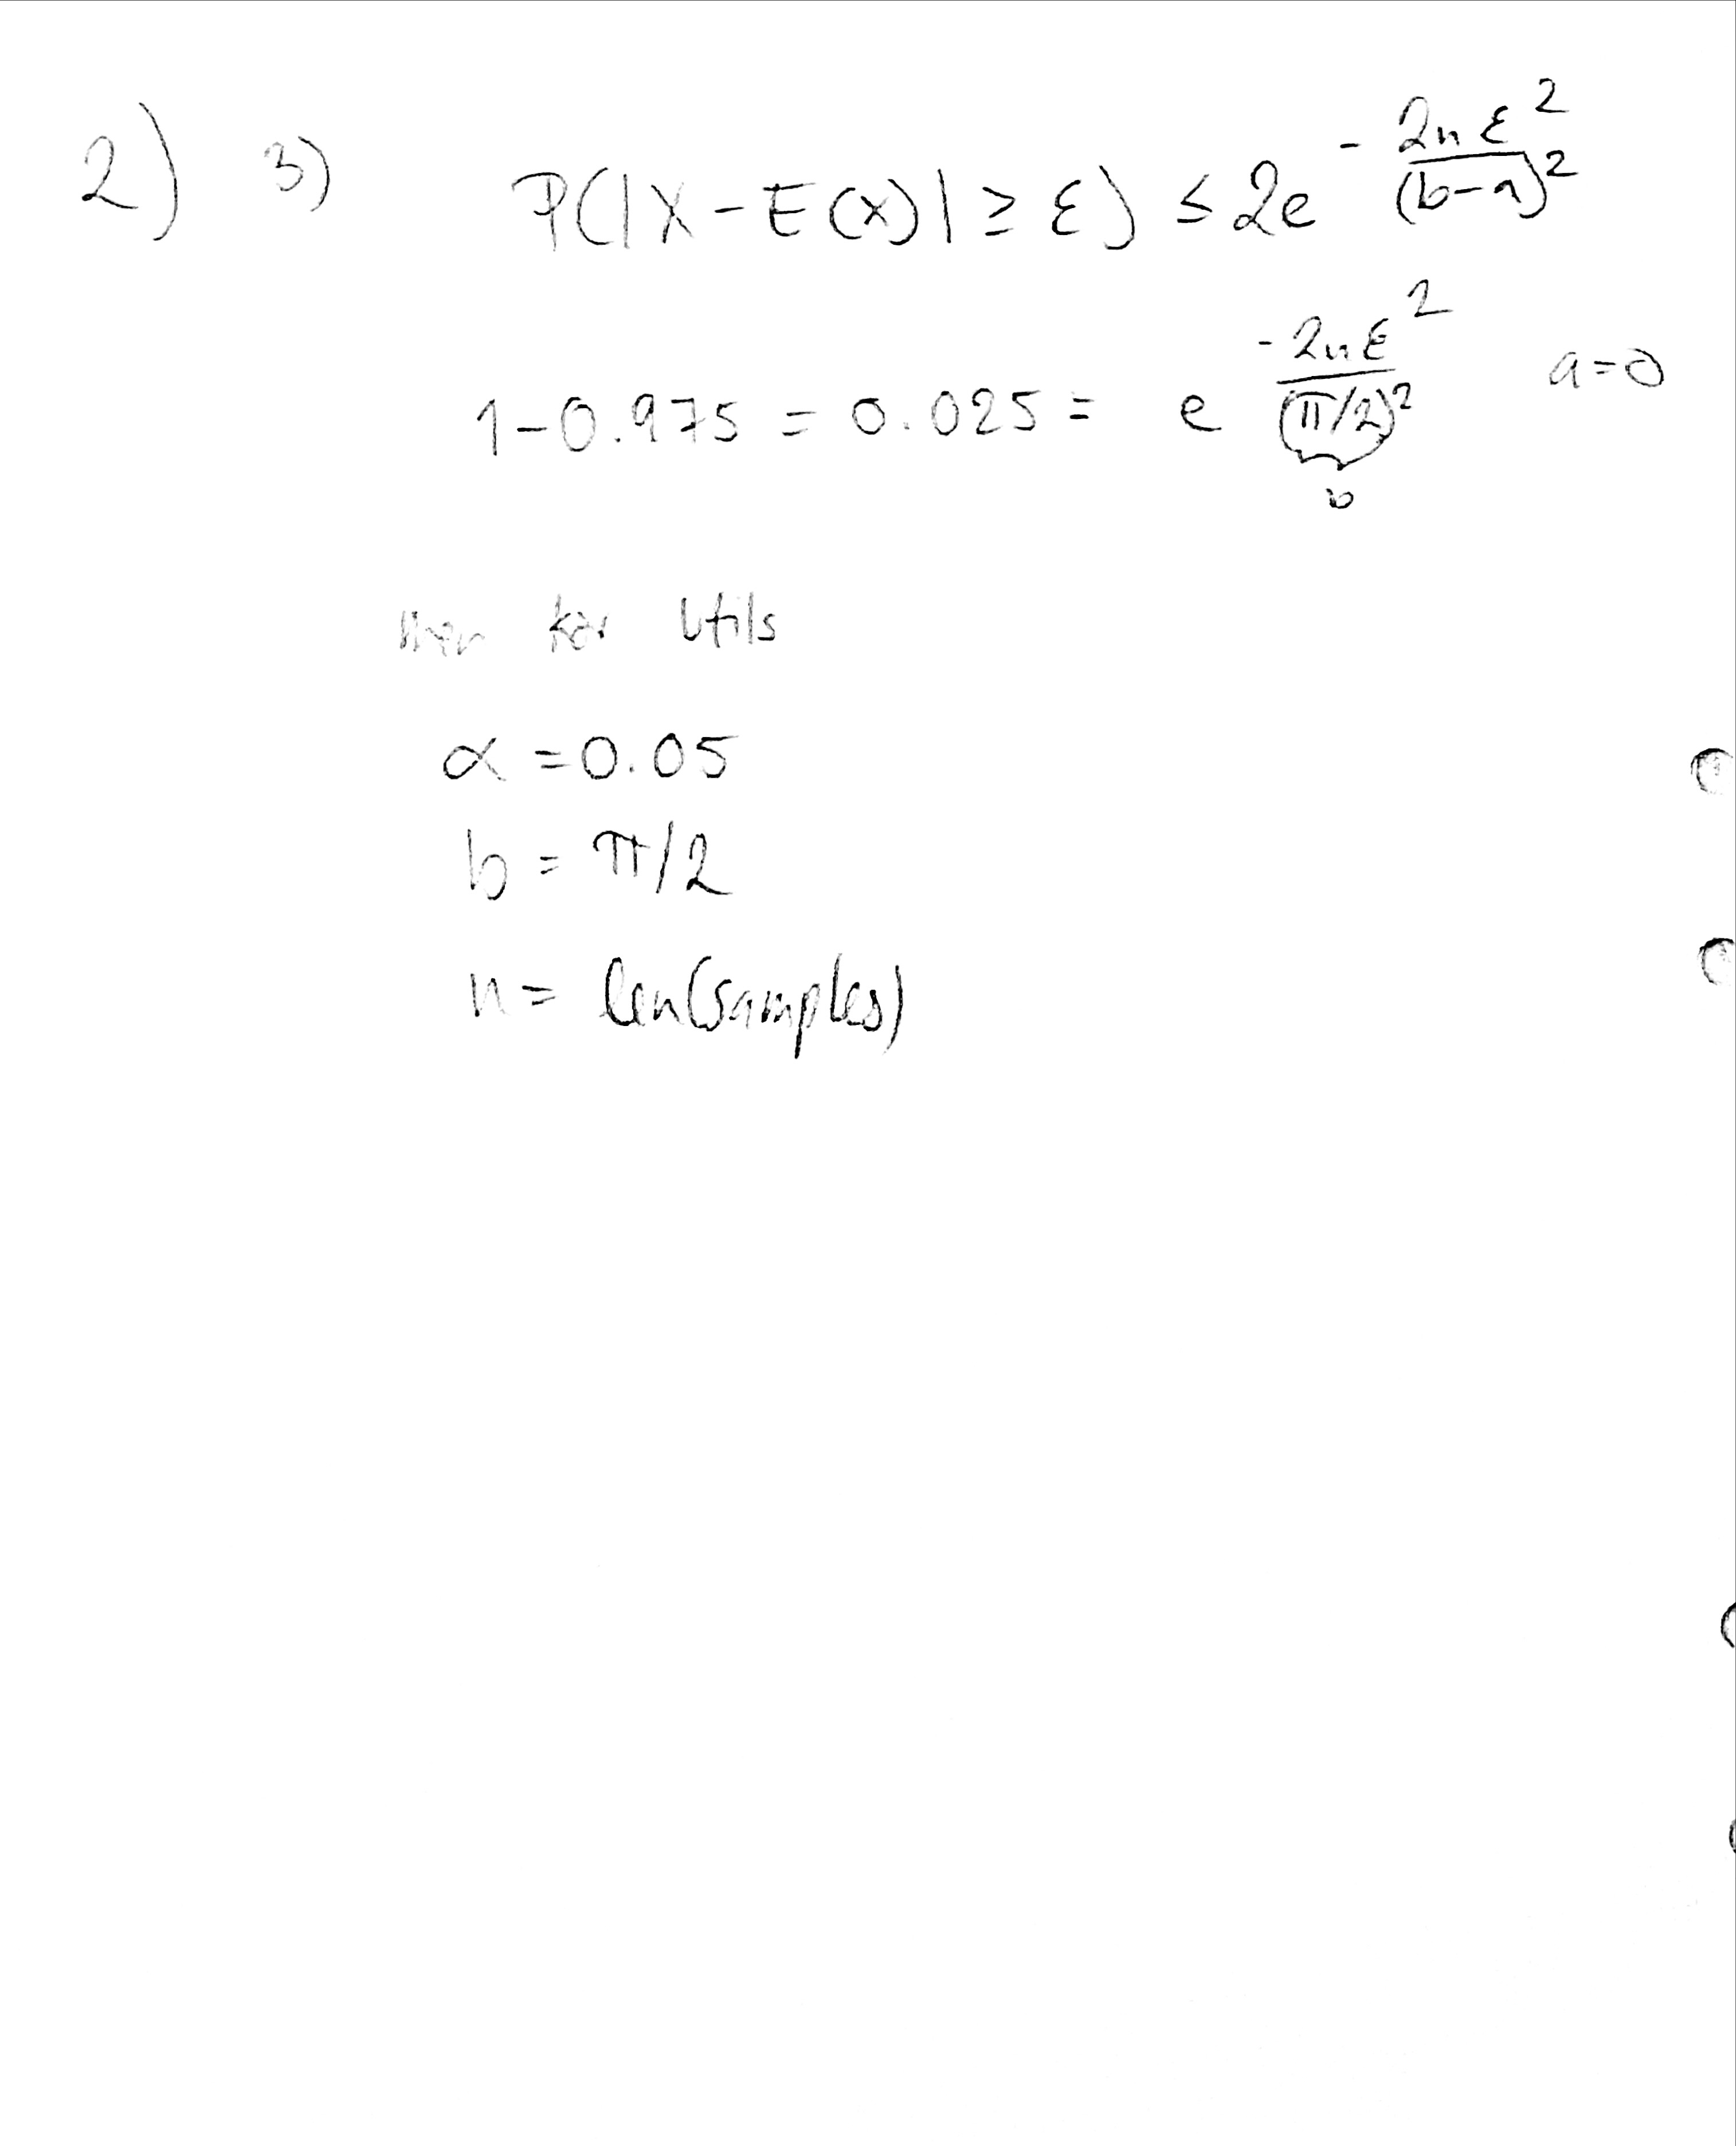 2) 3) P(|X - E(X)| ≥ ε) ≤ 2e^{-\frac{2nε^2}{(b-a)^2}}
1-0.975 = 0.025 = e^{\frac{-2nε^2}{(π/2)^2}} a=0
b
Utils
α = 0.05
b = π/2
n = len(samples)